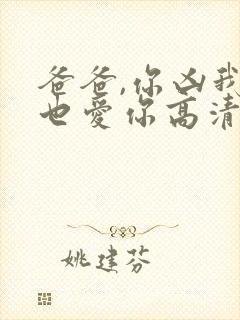 爸爸,你凶我
也爱你高清
姚建芬